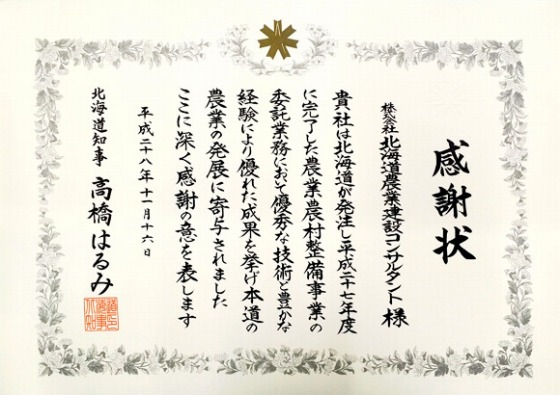 感謝状
株式会社 北海道農業建設コンサルタント 様
貴社は北海道が発注し平成二十七年度
に完了した農業農村整備事業の
委託業務において優秀な技術と豊かな
経験により優れた成果を挙げ本道の
農業の発展に寄与されました
ここに深く感謝の意を表します
平成二十八年十一月十六日
北海道知事 高橋はるみ